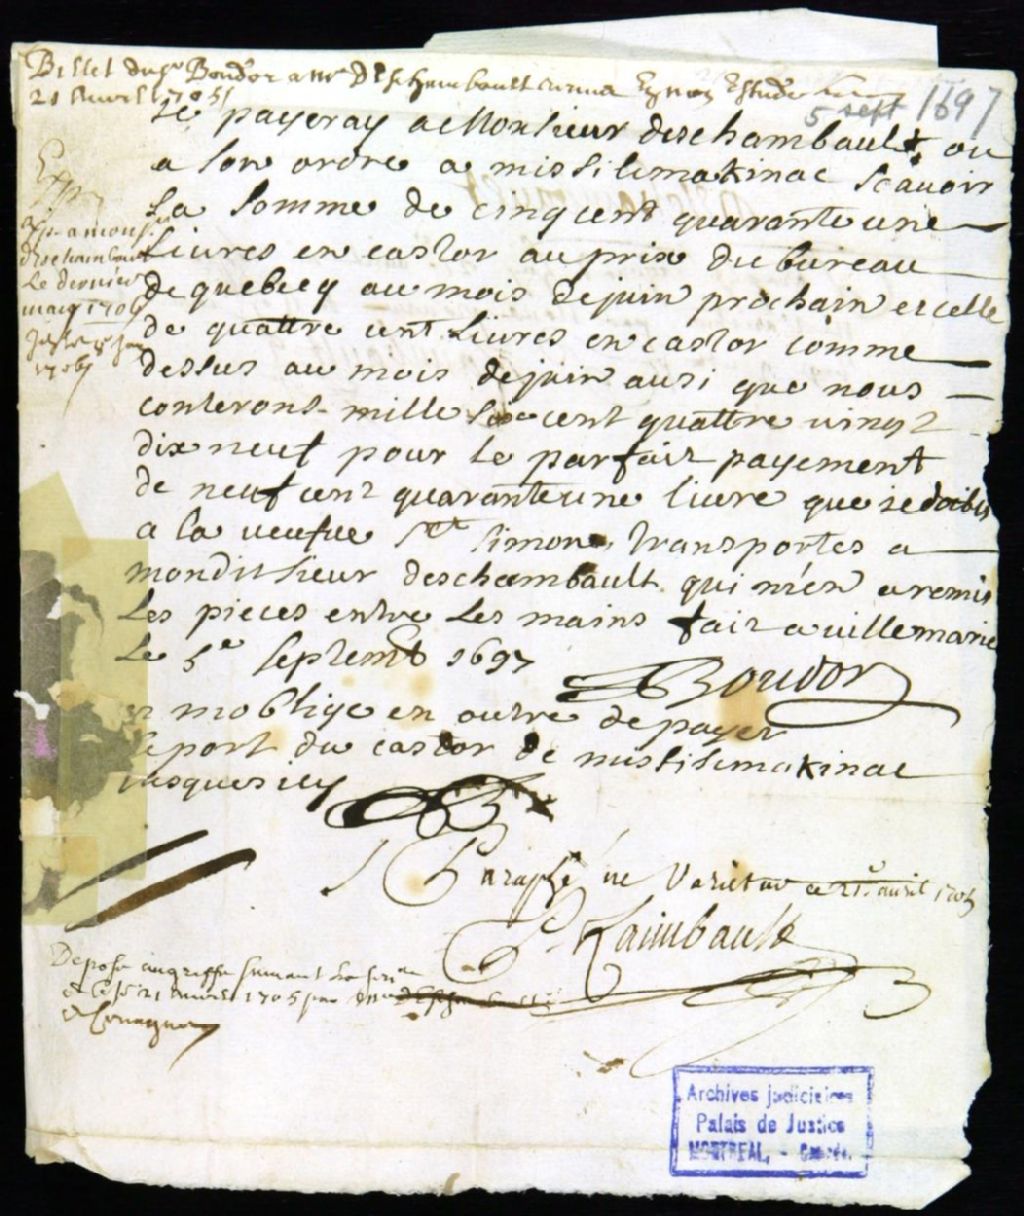 Billet du Sr Boudor a Mr Deschambault
21 avril 1705
5 sept 1697
Je payeray a Monsieur deschambault ou
a son ordre a missilimakinac scauoir
La somme de cinq cent quarante une
Liures en castor au prix du bureau
de quebecq au mois de juin prochain et celle
de quattre cent Liures en castor comme
dessus au mois de juin ausi que nous
conterons mille six cent quattre vingt
dix neuf pour le parfait payement
de neuf cent quarante une liure que je doibs
a la veufue St simon, transportes a
mondit sieur deschambault qui m'en a remis
Les pieces entre Les mains fait a uillemarie
Le 5e septemb 1697
Boudor
m oblige en outre de payer
le port du castor de missilimakinac
jusques icy
Exp
Exp a mons
deschambau
Le dernier
mars 1706
1706
Paraphé ne Varietur ce 21e auril 1705
P. Raimbault
Deposé au greffe suiuant
21 auril 1705 par
Archives judiciaires
Palais de Justice
MONTREAL, - Canada.